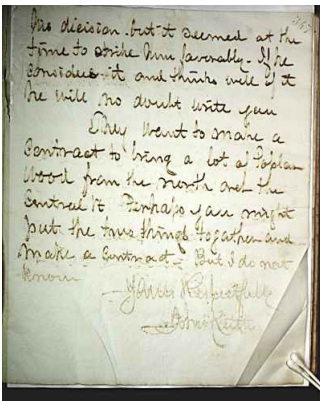 his decision but it seemed at the
time to strike him favorably - If he
considers it and thinks well of it
he will no doubt write you
They want to make a
Contract to bring a lot of Poplar
Wood from the north over the
Central R. Perhaps you might
put the two things together and
make a Contract - But I do not
know
Yours Respectfully